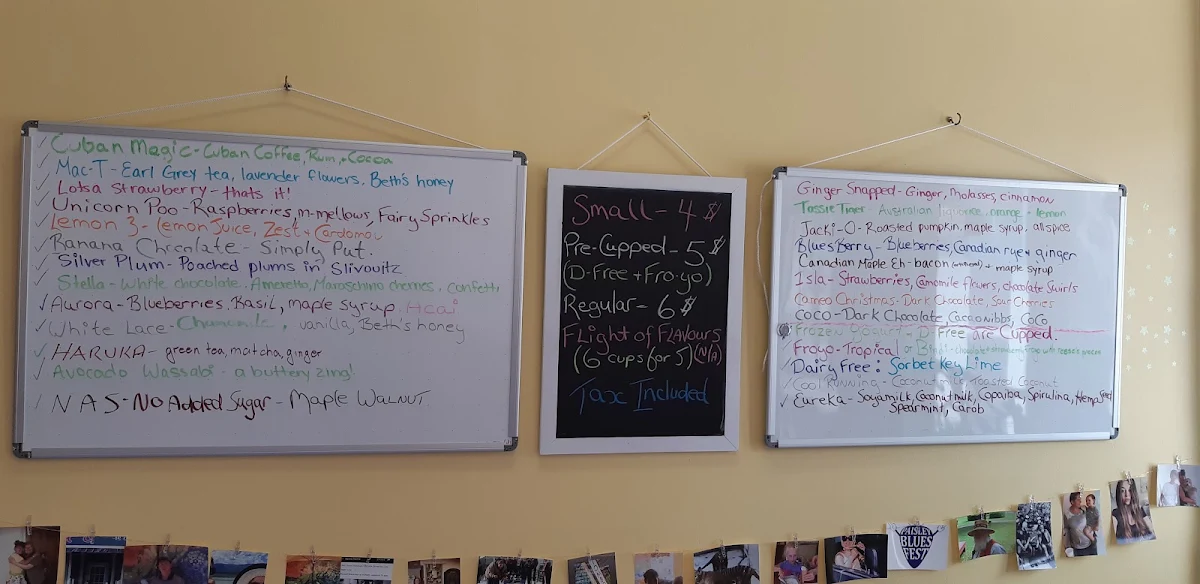 Cuban Magic - Cuban Coffee, Rum, + Cocoa
Mac-T - Earl Grey tea, lavender flowers, Beth's honey
Lotsa Strawberry - thats it!
Unicorn Poo - Raspberries, m-mellows, Fairy Sprinkles
Lemon 3 - lemon Juice, Zest + Cardomon
Banana Chocolate - Simply Put.
Silver Plum - Poached plums in Slivovitz
Stella - White chocolate, Amaretto, Maroschino cherries, confetti
Aurora - Blueberries, Basil, maple syrup, Acai
White Lace - Chamomile, vanilla, Beth's honey
HARUKA - green tea, matcha, ginger
Avocado Wassabi - a buttery zing!
NAS - No Added Sugar - Maple Walnut
Small - 4 $
Pre-Cupped - 5 $
(D-Free + Fro-yo)
Regular - 6 $
Flight of Flavours
(6 cups for 5) (N/A)
Tax Included
Ginger Snapped - Ginger, Molasses, cinnamon
Tassie Tiger Australian liquorice, orange + lemon
Jacki-O - Roasted pumpkin, maple syrup, allspice
Blues Berry - Blueberries, Canadian rye + ginger
Canadian Maple Eh - bacon + maple syrup
Isla - Strawberries, Camomile flowers, chocolate swirls
Cameo Christmas - Dark Chocolate, Sour Cherries
Coco - Dark Chocolate, Cacao nibbs, CoCo
Frozen Yogurt + D-Free are Cupped.
Froyo - Tropical or
Dairy Free: Sorbet Key Lime
Cool Running - Coconut Milk, Toasted Coconut
Eureka - Soyamilk, Coconut milk, Copaiba, Spirulina, Hemp Seed
Spearmint, Carob
PAISLEY
BLUES
FEST